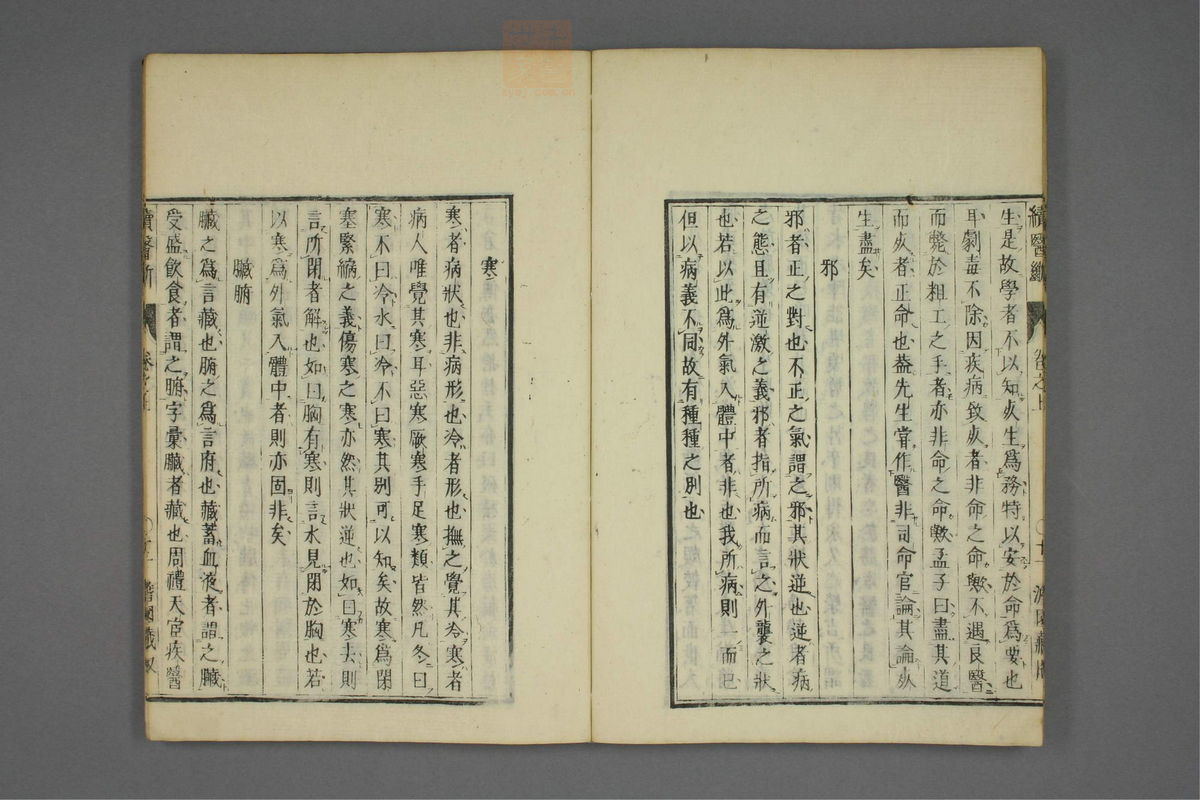 生是故學者不以知死生爲務特以安於命爲要也
耳劇毒不除因疾病致死者非命之命歟不遇良醫
而斃於粗工之手者亦非命之命歟孟子曰盡其道
而死者正命也葢先生嘗作醫非司命官論其論死
生盡矣
邪
邪者正之對也不正之氣謂之邪其狀逆也逆者病
之態且有逆激之義邪者指所病而言之外襲之狀
也若以此爲外氣入體中者非也我所病則一而已
但以病義不同故有種種之別也
寒
寒者病狀也非病形也冷者形也撫之覺其冷寒者
病人唯覺其寒耳惡寒厥寒手足寒類皆然凡冬曰
寒不曰冷水曰冷不曰寒其別可以知矣故寒爲閉
塞緊縮之義傷寒之寒亦然其狀逆也如曰寒去則
言所閉者解也如曰胸有寒則言水見閉於胸也若
以寒爲外氣入體中者則亦固非矣
臟腑
臟之爲言藏也腑之爲言府也藏蓄血液者謂之臟
受盛飮食者謂之腑字彙臟者藏也周禮天官疾醫